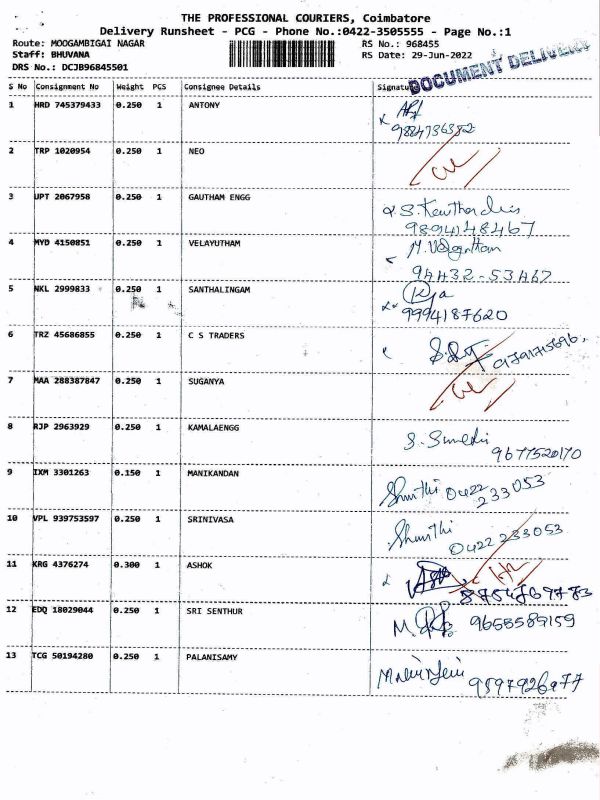 THE PROFESSIONAL COURIERS, Coimbatore
Delivery Runsheet - PCG - Phone No.:0422-3505555 - Page No.:1
Route: MOOGAMBIGAI NAGAR RS No.: 968455
Staff: BHUVANA RS Date: 29-Jun-2022
DRS No.: DCJB96845501
DOCUMENT DELIVERY
S No Consignment No Weight PCS Consignee Details Signature
1 HRD 745379433 0.250 1 ANTONY
9884736382
2 TRP 1020954 0.250 1 NEO
3 UPT 2067958 0.250 1 GAUTHAM ENGG
9894148467
4 MYD 4150851 0.250 1 VELAYUTHAM
94432-53467
5 NKL 2999833 0.250 1 SANTHALINGAM
9994187620
6 TRZ 45686855 0.250 1 C S TRADERS
9791715696
7 MAA 288387847 0.250 1 SUGANYA
8 RJP 2963929 0.250 1 KAMALAENGG
9677520170
9 IXM 3301263 0.150 1 MANIKANDAN
Shunthi 0422
233053
10 VPL 939753597 0.250 1 SRINIVASA
Shunthi
0422 233053
11 KRG 4376274 0.300 1 ASHOK
8754769773
12 EDQ 18029044 0.250 1 SRI SENTHUR
9655589159
13 TCG 50194280 0.250 1 PALANISAMY
9597926977